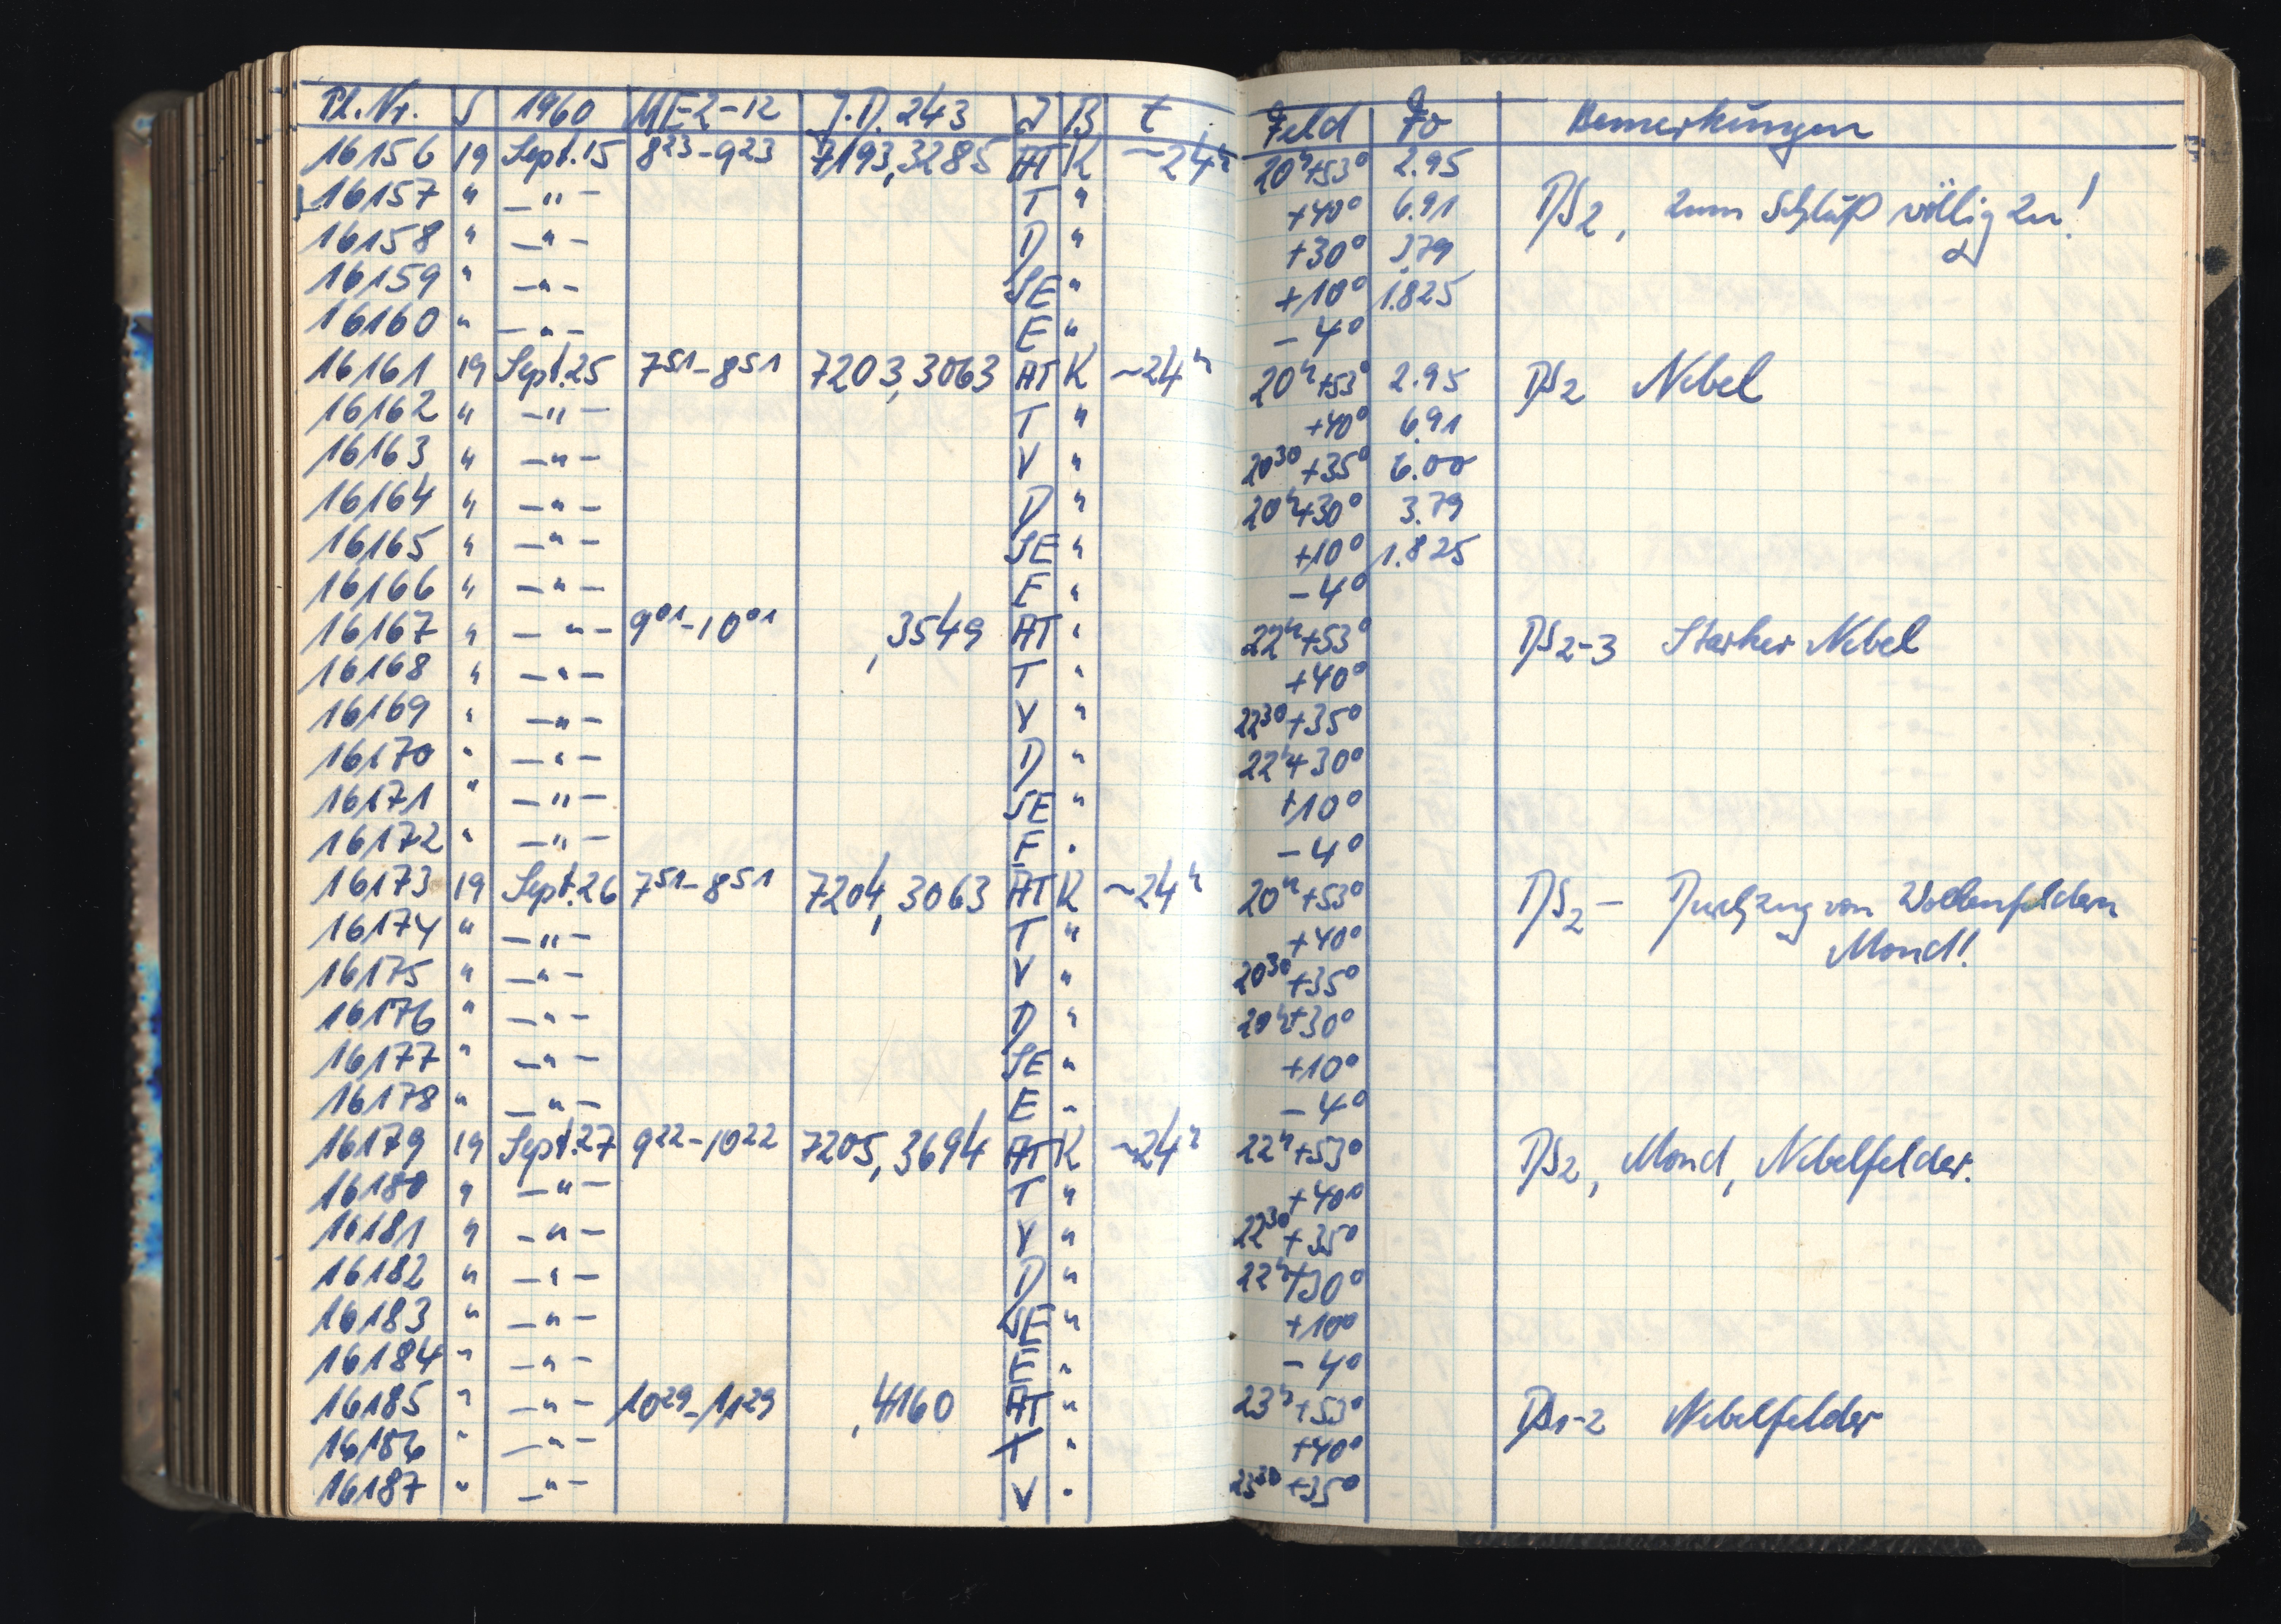 Pl. Nr. S 1960 ME2-12 J.D. 243 J B t Feld Fo Bemerkungen
16156 19 Sept. 15 8 23 - 9 23 7193,3285 AT K ~24 h 20 h +53° 2.95
16157 " -"- T " +40° 6.91 DS2, zum Schluß völlig zu!
16158 " -"- D " +30° 3.79
16159 " -"- SE " +10° 1.825
16160 " -"- E " -4°
16161 19 Sept. 25 7 51 - 8 51 7203,3063 AT K ~24 h 20 h +53° 2.95 DS2 Nebel
16162 " -"- T " +40° 6.91
16163 " -"- V " 20 30 +35° 6.00
16164 " -"- D " 20 h +30° 3.79
16165 " -"- SE " +10° 1.825
16166 " -"- E " -4°
16167 " -"- 9 01 - 10 01 ,3549 AT " 22 h +53° DS2-3 Starker Nebel
16168 " -"- T " +40°
16169 " -"- V " 22 30 +35°
16170 " -"- D " 22 h +30°
16171 " -"- SE " +10°
16172 " -"- E " -4°
16173 19 Sept. 26 7 51 - 8 51 7204,3063 AT K ~24 h 20 h +53° DS2 - Durchzug von Wolkenfeldern
16174 " -"- T " +40° Mond!
16175 " -"- V " 20 30 +35°
16176 " -"- D " 20 h +30°
16177 " -"- SE " +10°
16178 " -"- E " -4°
16179 19 Sept. 27 9 22 - 10 22 7205,3694 AT K ~24 h 22 h +53° DS2, Mond, Nebelfelder.
16180 " -"- T " +40°
16181 " -"- V " 22 30 +35°
16182 " -"- D " 22 h +30°
16183 " -"- SE " +10°
16184 " -"- E " -4°
16185 " -"- 10 29 - 11 29 ,4160 AT " 23 h +53° DS1-2 Nebelfelder
16186 " -"- T " +40°
16187 " -"- V " 23 30 +35°